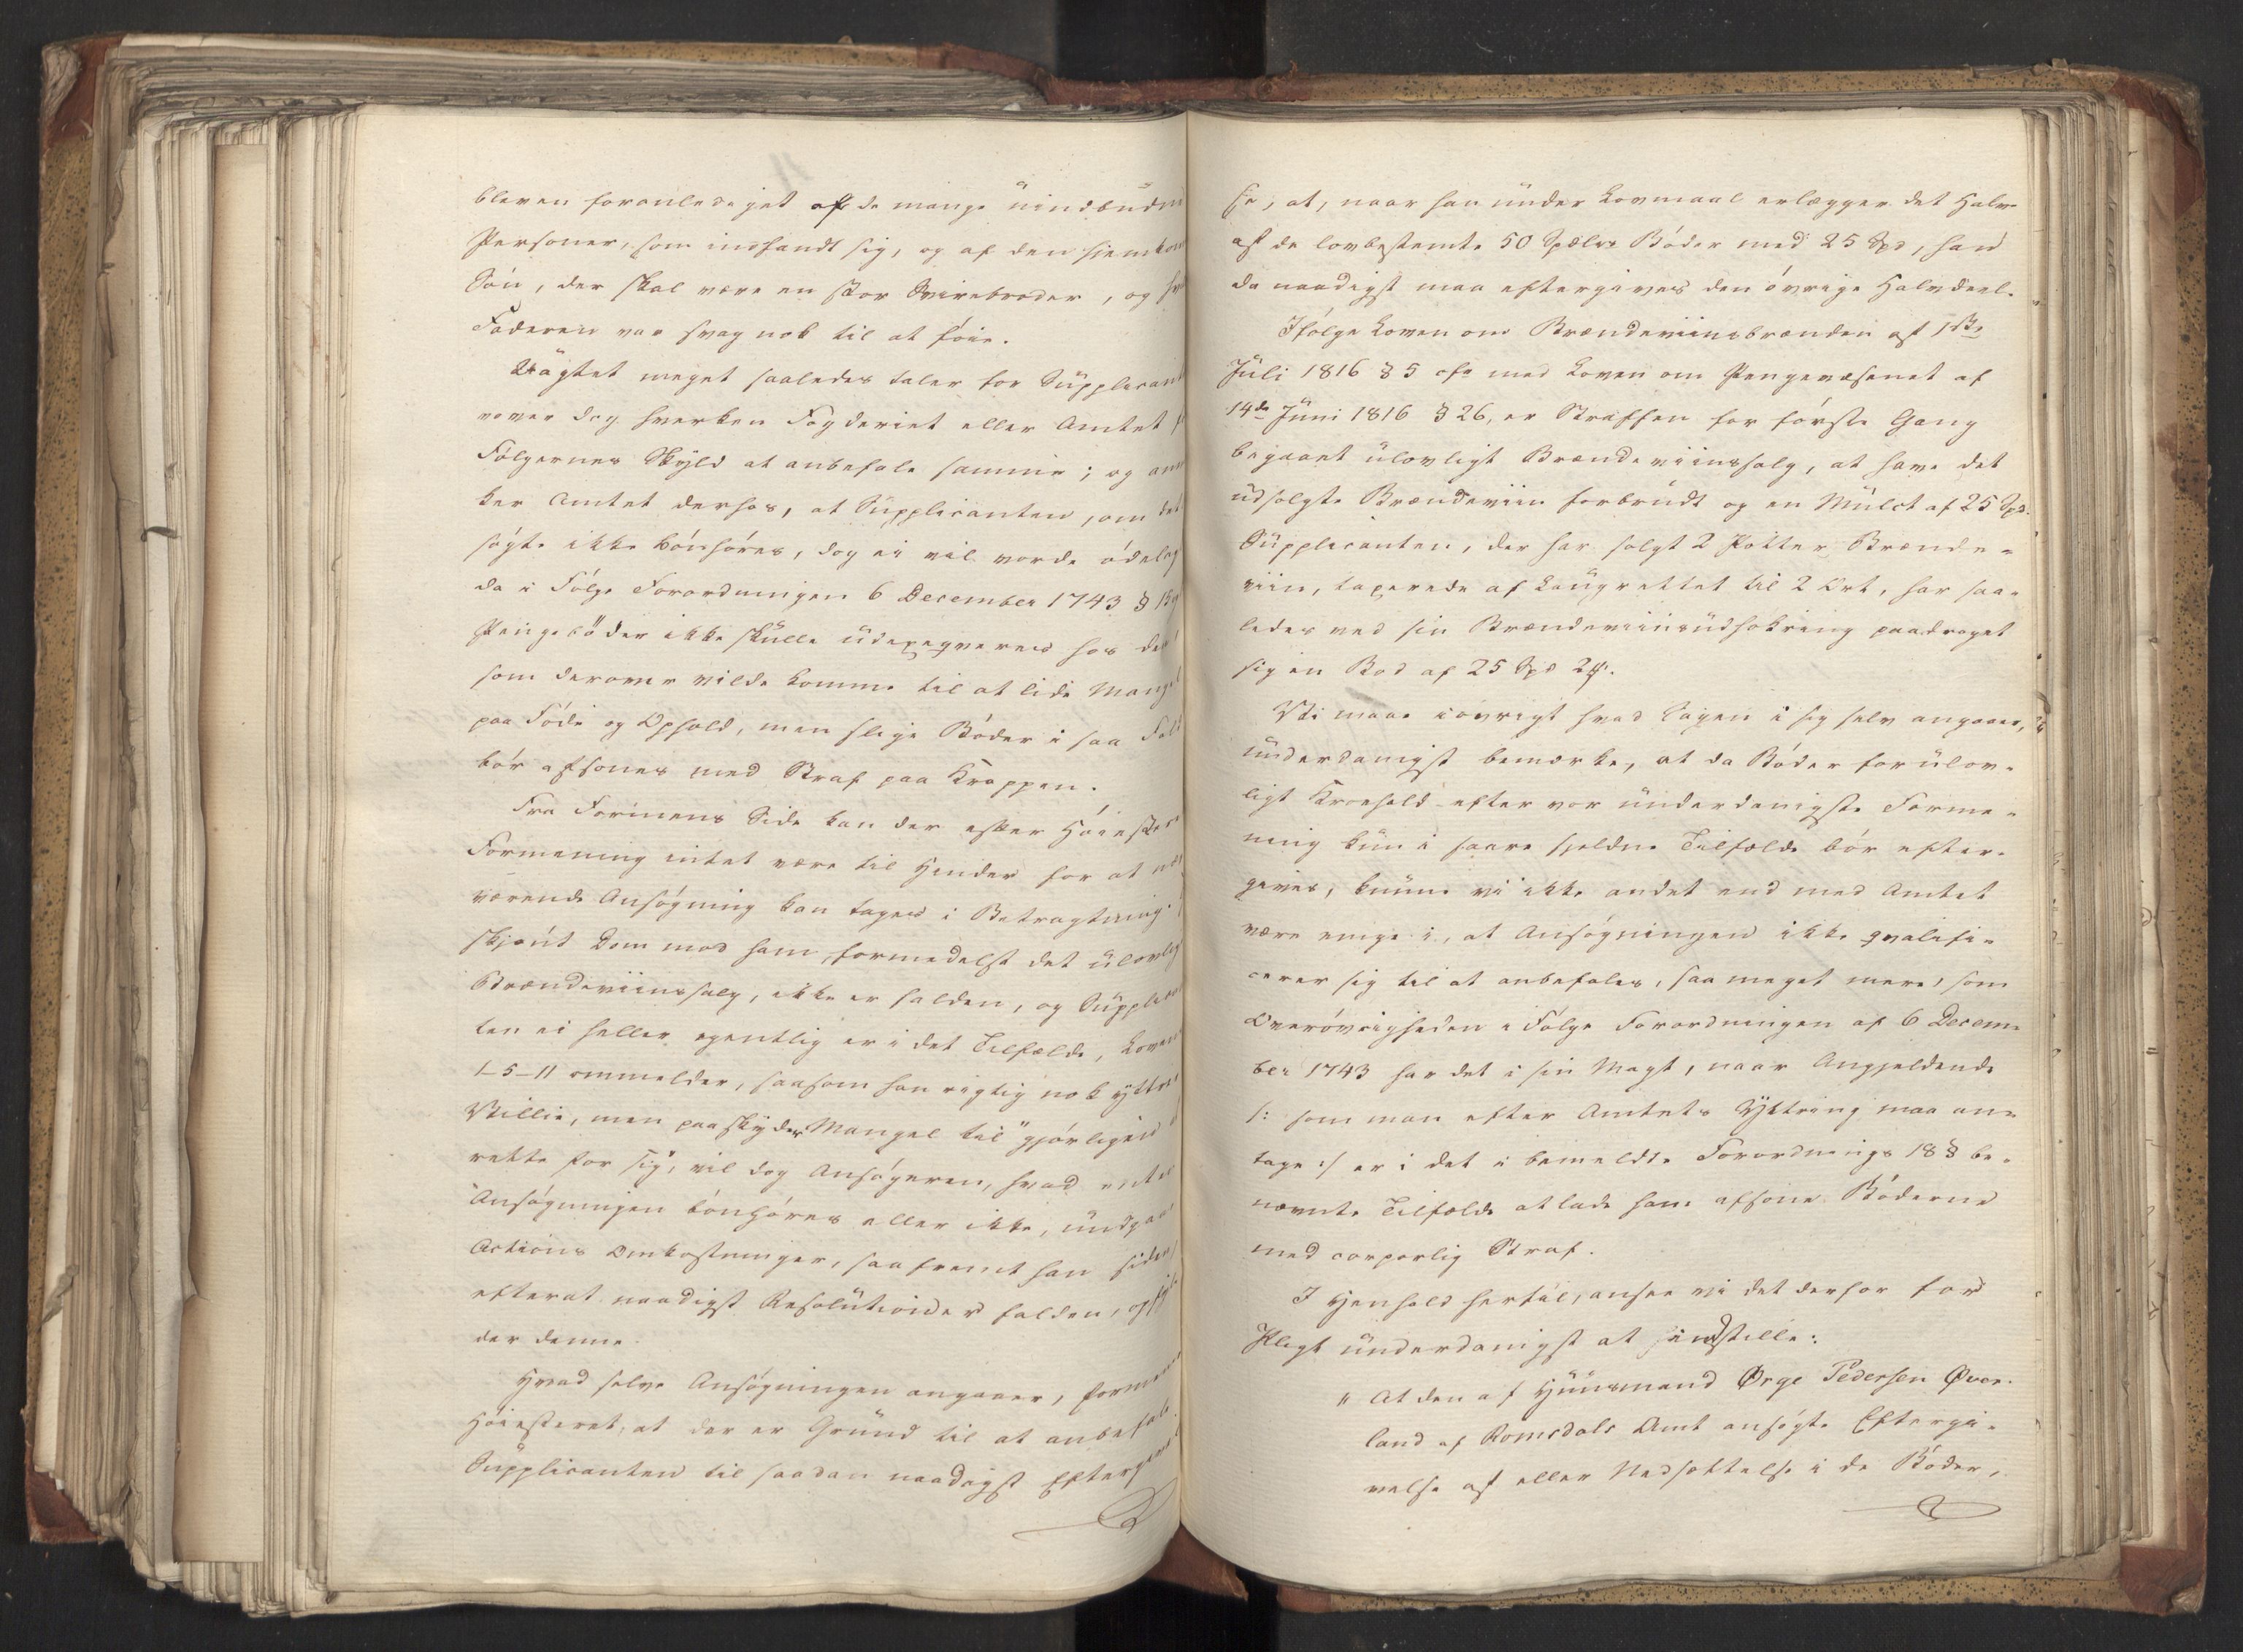 bleven foranlediget af de mange uindbudne
Personer, som indfandt sig, og af den hjemkom
Søn, der skal være en stor Svirebroder, og hv
Faderen var svag nok til at føie.
Uagtet meget saaledes taler for Supplicant
vover dog hverken Fogderiet eller Amtet f
Følgernes Skyld at anbefale samme; og an
ker Amtet derhos, at Supplicanten, om det
søgte ikke bønhøres, dog ei vil vorde ødelag
da i Følge Forordningen 6 December 1743 §
Pengebøder ikke skulle udexeqveres hos de
som derover vilde komme til at lide Mangel
paa Føde og Ophold, men slige Bøder i saa Fal
bør afsones med Straf paa Kroppen.
Fra Formens Side kan der efter Høieste
Formening intet være til Hinder for at
værende Ansøgning kan tages i Betragtning.
skjønt Dom mod ham, formedelst det ulovlig
Brændeviinssalg, ikke er falden, og Supplica
ten ei heller egentlig er i det Tilfælde, Loven
1-5-11 ommelder, saasom han rigtig nok yttre
Villie, men paaskyder Mangel til "gjørligen
rette for sig, vil dog Ansøgeren, hvad enten
Ansøgningen bønhøres eller ikke, undgaae
Actions Omkostninger, saafremt han siden
efterat naadigst Resolution er falden, opfyl
der denne.
Hvad selve Ansøgningen angaaer, formener
Høiesteret, at der er Grund til at anbefale
Supplicanten til saadan naadigst Eftergivel
se, at, naar han under Lovmaal erlægger det Halve
af de lovbestemte 50 Spdlrs Bøder med 25 Spd, ham
da naadigst maa eftergives den øvrige Halvdeel.
Ifølge Loven om Brændeviinsbrænden af 1ste
Juli 1816 § 5 cfr med Loven om Pengevæsenet af
14de Juni 1816 § 26, er Straffen for første Gang
begaaet ulovligt Brændeviinssalg, at have det
udsolgte Brændeviin forbrudt og en Mulct af 25 Spd.
Supplicanten, der har solgt 2 Potter Brænde-
viin, taxerede af Laugrettet til 2 Ort, har saa-
ledes ved sin Brændeviinsudskikning paadraget
sig en Bod af 25 Spd
Vi maae iøvrigt hvad Sagen i sig selv angaaer,
underdanigst bemærke, at da Bøder for ulov-
ligt Kroehold efter vor underdanigste Forme-
ning kun i saare sjeldne Tilfælde bør efter-
gives, kunne vi ikke andet end med Amtet
være enige i, at Ansøgningen ikke qvalifi-
cerer sig til at anbefales, saa meget mere, som
Overøvrigheden i Følge Forordningen af 6 Decem-
ber 1743 har det i sin Magt, naar Angjeldende
/: som man efter Amtets Yttring maa an-
tage :/ er i det i bemeldte Forordnings 18 § be-
nævnte Tilfælde at lade ham afsone Bøderne
med corporlig Straf.
I Henhold hertil, ansee vi det derfor for
Pligt underdanigst at indstille:
" At den af Huusmand Ørge Pedersen Qver-
land af Romsdals Amt ansøgte Eftergi-
velse af eller Nedsættelse i de Bøder,